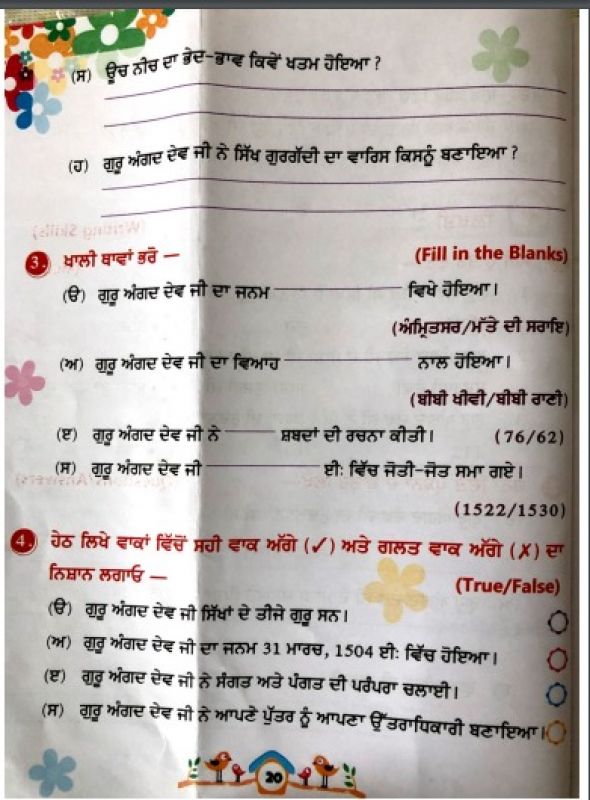 (ਸ) ਊਚ ਨੀਚ ਦਾ ਭੇਦ-ਭਾਵ ਕਿਵੇਂ ਖਤਮ ਹੋਇਆ ?
(ਹ) ਗੁਰੂ ਅੰਗਦ ਦੇਵ ਜੀ ਨੇ ਸਿੱਖ ਗੁਰਗੱਦੀ ਦਾ ਵਾਰਿਸ ਕਿਸਨੂੰ ਬਣਾਇਆ ?
3. ਖਾਲੀ ਥਾਵਾਂ ਭਰੋ — (Fill in the Blanks)
(ੳ) ਗੁਰੂ ਅੰਗਦ ਦੇਵ ਜੀ ਦਾ ਜਨਮ ———— ਵਿਖੇ ਹੋਇਆ।
(ਅੰਮ੍ਰਿਤਸਰ/ਮੱਤੇ ਦੀ ਸਰਾਇ)
(ਅ) ਗੁਰੂ ਅੰਗਦ ਦੇਵ ਜੀ ਦਾ ਵਿਆਹ ———— ਨਾਲ ਹੋਇਆ।
(ਬੀਬੀ ਖੀਵੀ/ਬੀਬੀ ਰਾਣੀ)
(ੲ) ਗੁਰੂ ਅੰਗਦ ਦੇਵ ਜੀ ਨੇ ——— ਸ਼ਬਦਾਂ ਦੀ ਰਚਨਾ ਕੀਤੀ। (76/62)
(ਸ) ਗੁਰੂ ਅੰਗਦ ਦੇਵ ਜੀ ———— ਈਃ ਵਿੱਚ ਜੋਤੀ-ਜੋਤ ਸਮਾ ਗਏ।
(1522/1530)
4. ਹੇਠ ਲਿਖੇ ਵਾਕਾਂ ਵਿੱਚੋਂ ਸਹੀ ਵਾਕ ਅੱਗੇ (✓) ਅਤੇ ਗਲਤ ਵਾਕ ਅੱਗੇ (✗) ਦਾ
ਨਿਸ਼ਾਨ ਲਗਾਓ — (True/False)
(ੳ) ਗੁਰੂ ਅੰਗਦ ਦੇਵ ਜੀ ਸਿੱਖਾਂ ਦੇ ਤੀਜੇ ਗੁਰੂ ਸਨ।
(ਅ) ਗੁਰੂ ਅੰਗਦ ਦੇਵ ਜੀ ਦਾ ਜਨਮ 31 ਮਾਰਚ, 1504 ਈਃ ਵਿੱਚ ਹੋਇਆ।
(ੲ) ਗੁਰੂ ਅੰਗਦ ਦੇਵ ਜੀ ਨੇ ਸੰਗਤ ਅਤੇ ਪੰਗਤ ਦੀ ਪਰੰਪਰਾ ਚਲਾਈ।
(ਸ) ਗੁਰੂ ਅੰਗਦ ਦੇਵ ਜੀ ਨੇ ਆਪਣੇ ਪੁੱਤਰ ਨੂੰ ਆਪਣਾ ਉੱਤਰਾਧਿਕਾਰੀ ਬਣਾਇਆ।
20